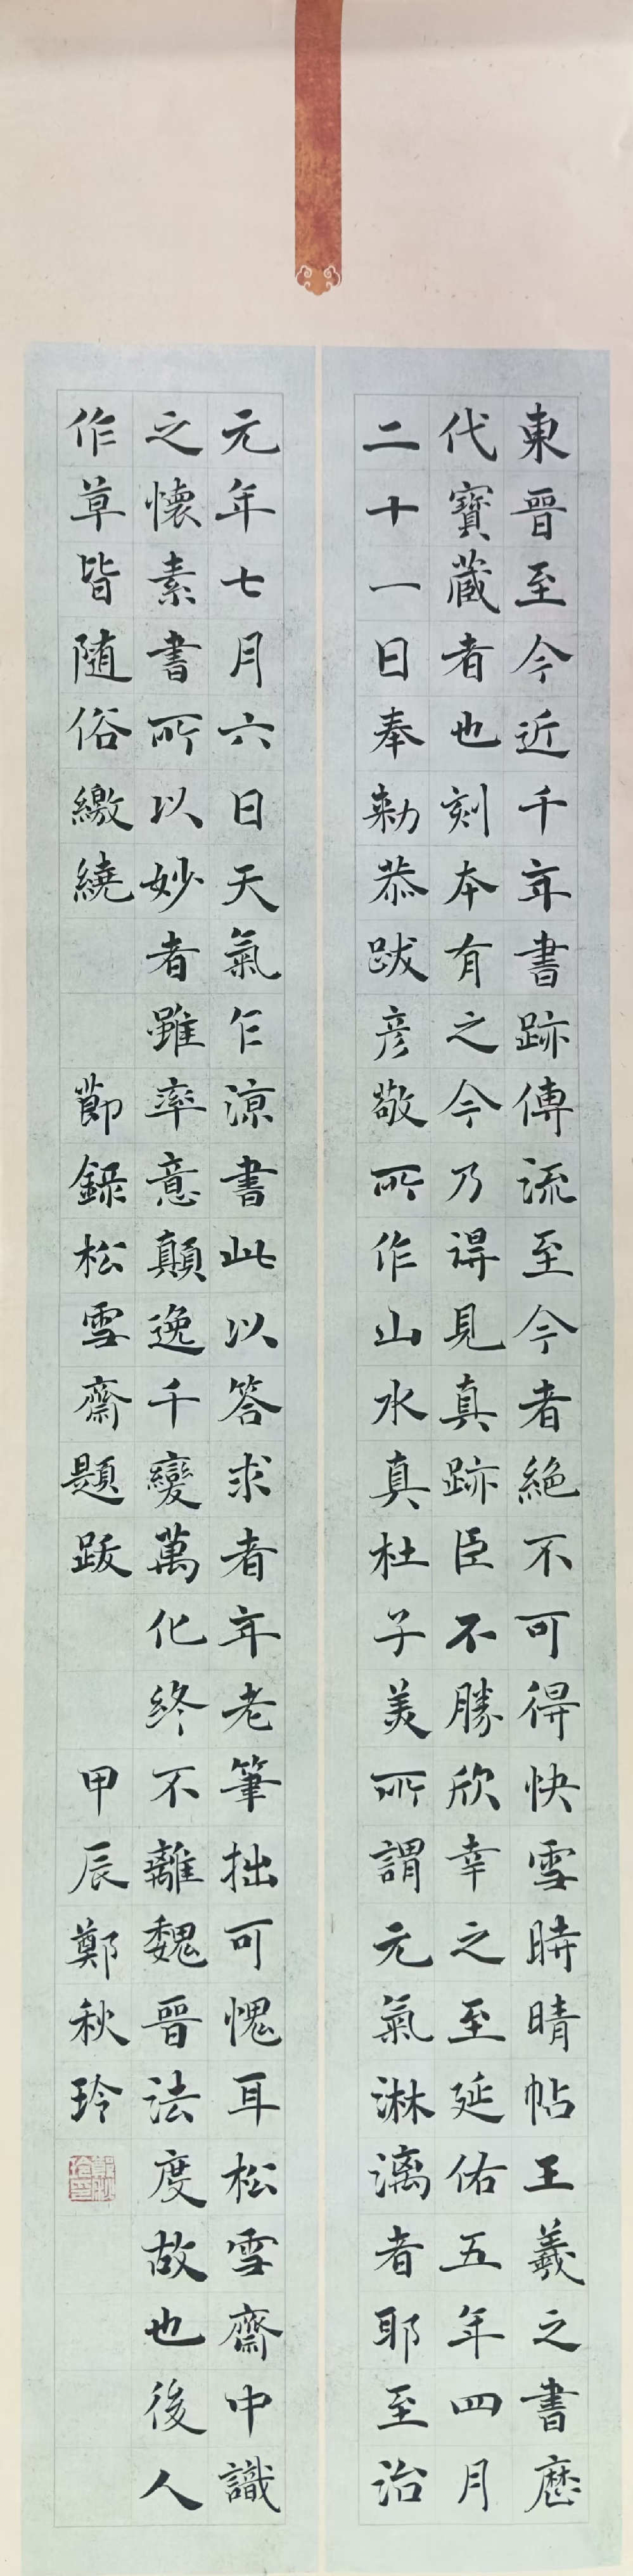 東晉至今近千年書跡傳流至今者絕不可得快雪時晴帖王羲之書歷
代寶藏者也刻本有之今乃得見真跡臣不勝欣幸之至延佑五年四月
二十一日奉勑恭跋彥敬所作山水真杜子美所謂元氣淋漓者耶至治
元年七月六日天氣乍涼書此以答求者年老筆拙可愧耳松雪齋中識
之懷素書所以妙者雖率意顛逸千變萬化終不離魏晉法度故也後人
作草皆随俗繳繞 節錄松雪齋題跋 甲辰鄭秋玲